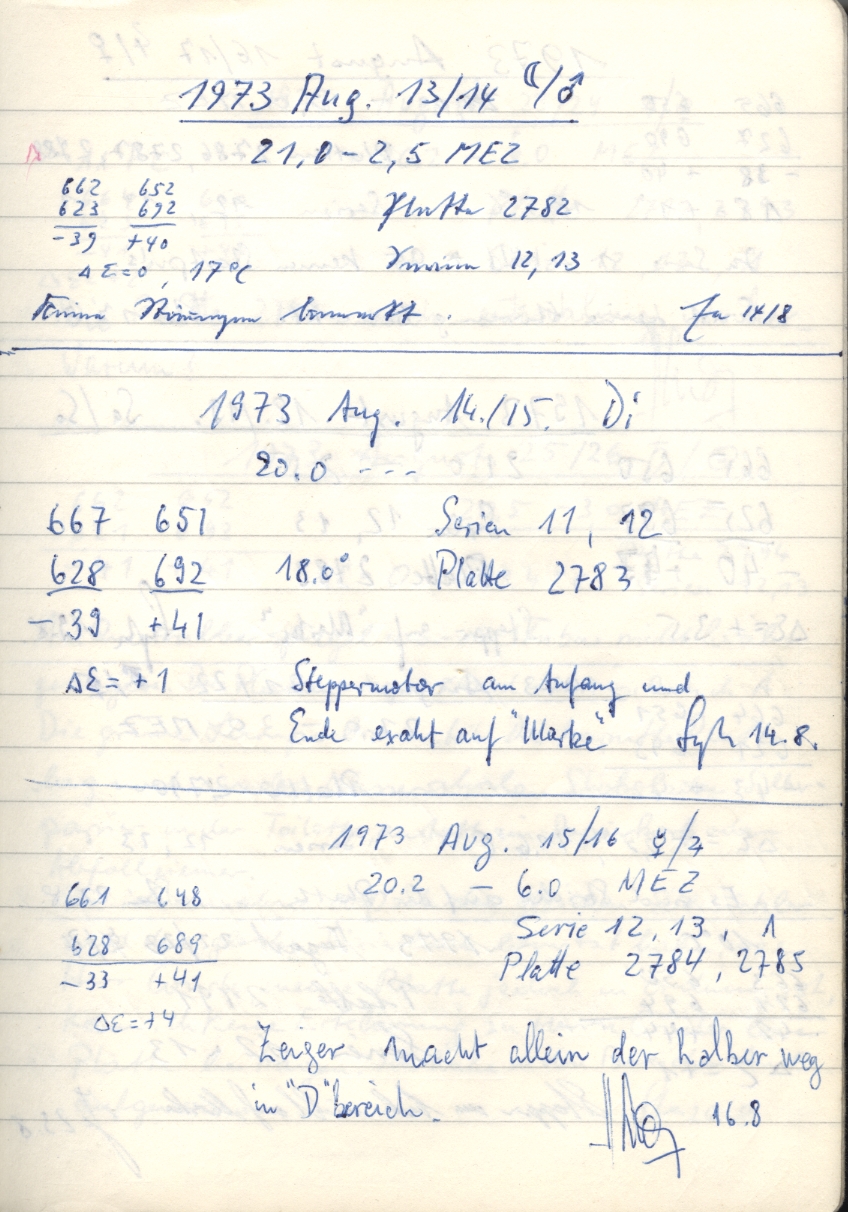 1973 Aug. 13/14 ☾/♂
21,0 – 2,5 MEZ
662 652
623 692 Platte 2782
-39 +40
ΔE=0, 17°C Serien 12, 13
Keine Störungen bemerkt. 14/8
1973 Aug. 14./15. Di
20.0 ---
667 651 Serien 11, 12
628 692 18.0° Platte 2783
-39 +41
ΔE=+1 Steppermotor am Anfang und
Ende exakt auf "Marke" 14.8.
1973 Aug. 15/16 ☿/♃
20.2 – 6.0 MEZ
661 648
Serie 12, 13, 1
628 689
Platte 2784, 2785
-33 +41
ΔE=+4
Zeiger macht allein der halber weg
in "D" bereich. 16.8